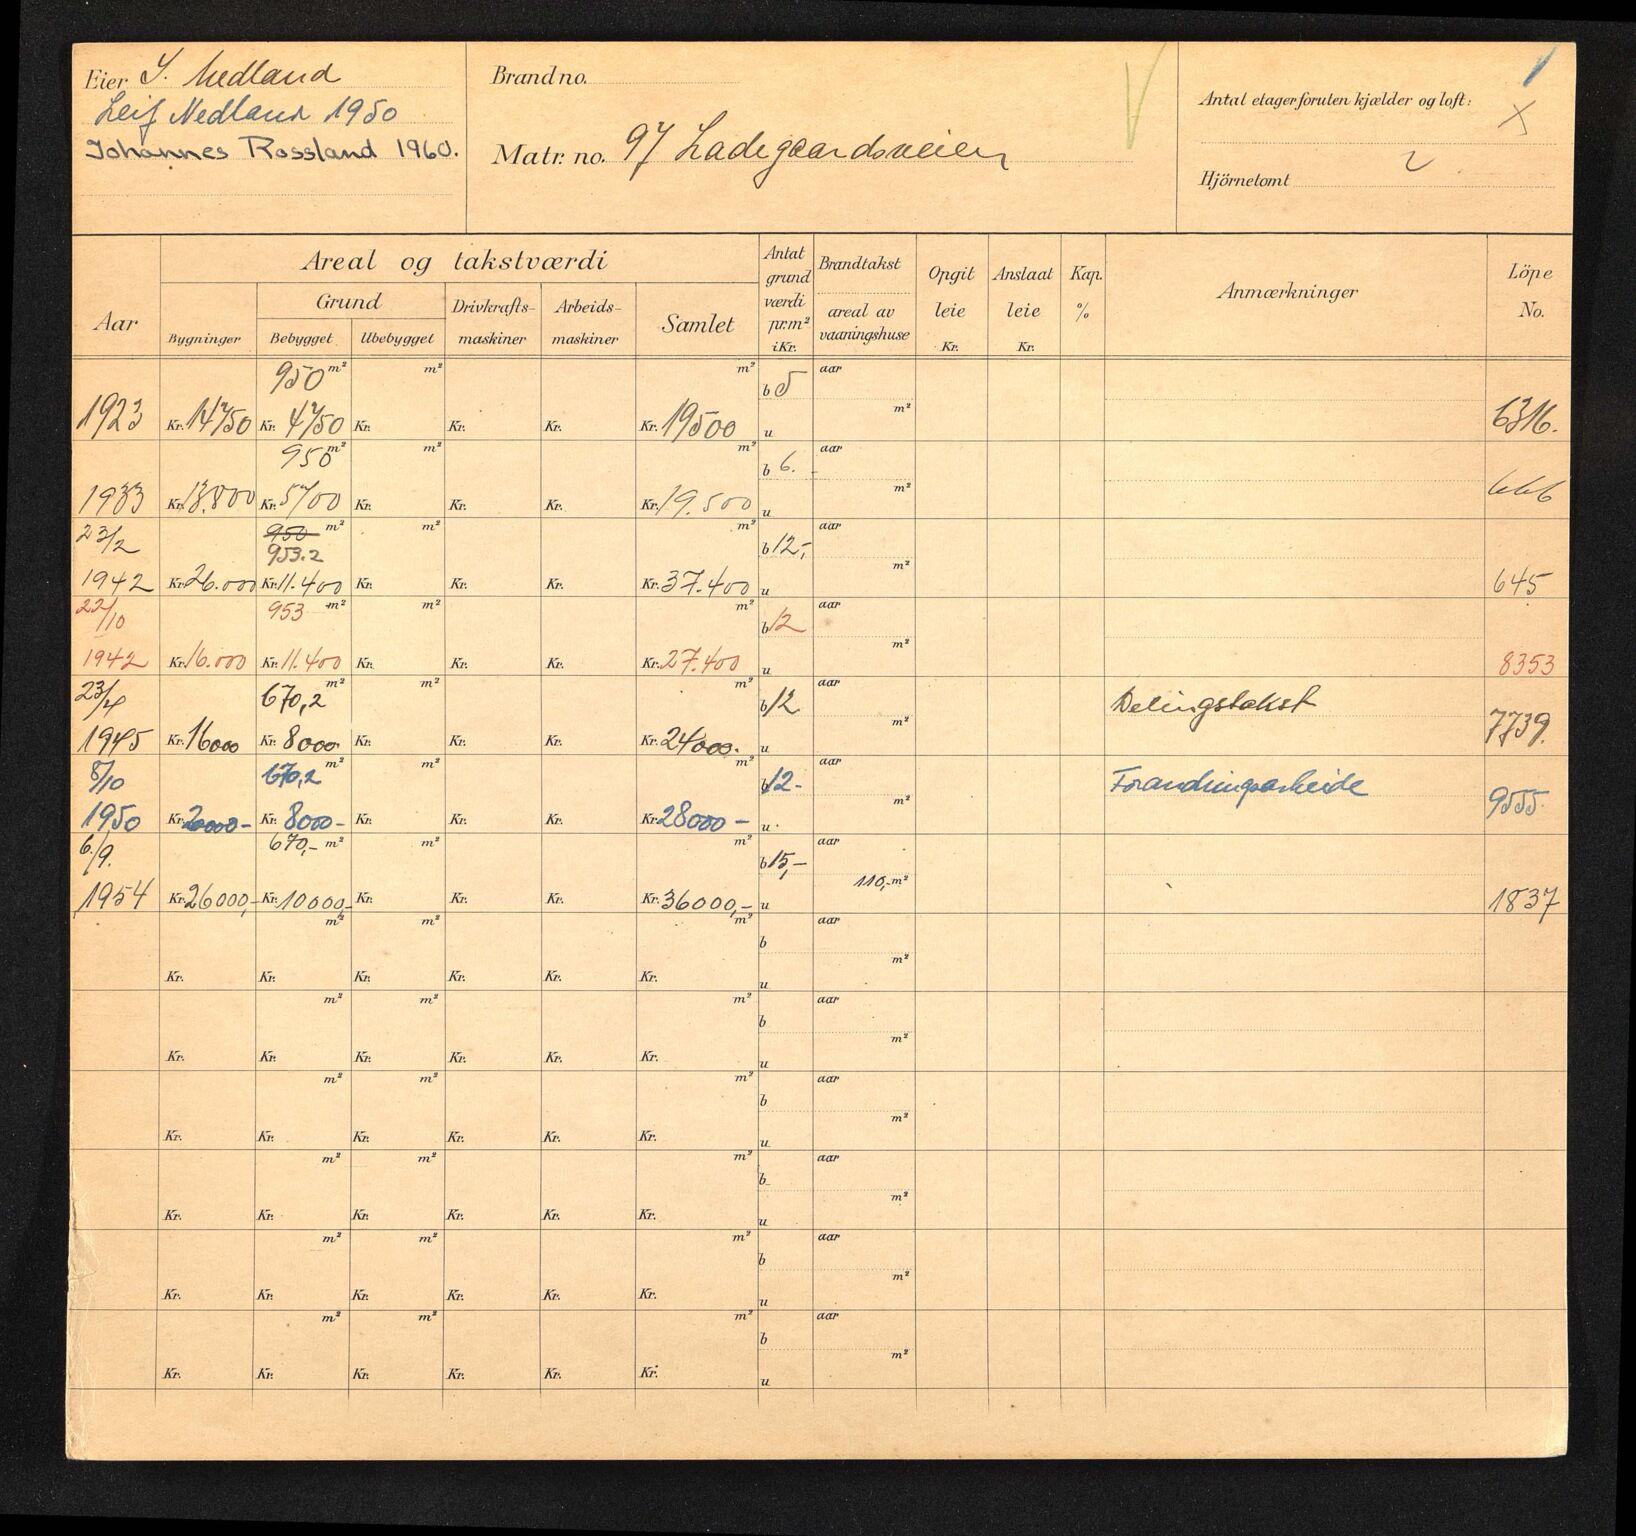 Eier S. Nedland
Leif Nedland 1950
Johannes Rossland 1960.
Brand no.
Matr. no. 97 Ladegaardsveien
Antal etager foruten kjælder og loft:
Hjörnetomt
Aar
Areal og takstværdi
Bygninger
Grund
Bebygget Ubebygget
Drivkrafts-
maskiner
Arbeids-
maskiner
Samlet
Antat
grund
værdi
pr. m²
i Kr.
Brandtakst
areal av
vaaningshuse
Opgit
leie
Kr.
Anslaat
leie
Kr.
Kap.
%
Anmærkninger
Löpe
No.
950 m² m² m² b 5 aar
m²
1923 Kr. 14750 Kr. 4750 Kr. Kr. Kr. Kr. 19500 u 6316.
950 m² m² m² b 6. aar
m²
1933 Kr. 13.800 Kr. 5700 Kr. Kr. Kr. Kr. 19.500 u 666
23/2 950 m² m² m² aar
953.2 b 12,-
m²
1942 Kr. 26.000 Kr. 11.400 Kr. Kr. Kr. Kr. 37.400 u 645
22/10 953 m² m² m² b 12 aar
m²
1942 Kr. 16.000 Kr. 11.400 Kr. Kr. Kr. Kr. 27.400 u 8353
23/4 670,2 m² m² m² b 12 aar Delingstakst
m²
1945 Kr. 16000 Kr. 8000 Kr. Kr. Kr. Kr. 24000. u 7739.
5/10 670,2 m² m² m² b 12- aar Forandringsarbeide
m²
1950 Kr. 20000- Kr. 8000- Kr. Kr. Kr. Kr. 28000- u 9555
6./9. 670,- m² m² m² b 15,- aar
110,- m²
1954 Kr. 26000,- Kr. 10000,- Kr. Kr. Kr. Kr. 36000,- u 1837
m² m² m² b aar
m²
Kr. Kr. Kr. Kr. Kr. Kr. u
m² m² m² b aar
m²
Kr. Kr. Kr. Kr. Kr. Kr. u
m² m² m² b aar
m²
Kr. Kr. Kr. Kr. Kr. Kr. u
m² m² m² b aar
m²
Kr. Kr. Kr. Kr. Kr. Kr. u
m² m² m² b aar
m²
Kr. Kr. Kr. Kr. Kr. Kr. u
m² m² m² b aar
m²
Kr. Kr. Kr. Kr. Kr. Kr. u